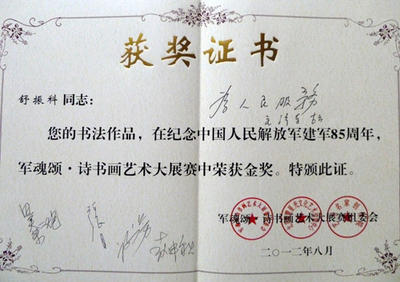 获奖证书
舒振科同志：
為人民服務
您的书法作品，在纪念中国人民解放军建军85周年，
军魂颂·诗书画艺术大展赛中荣获金奖。特颁此证。
军魂颂·诗书画艺术大展赛组委会
二〇一二年八月